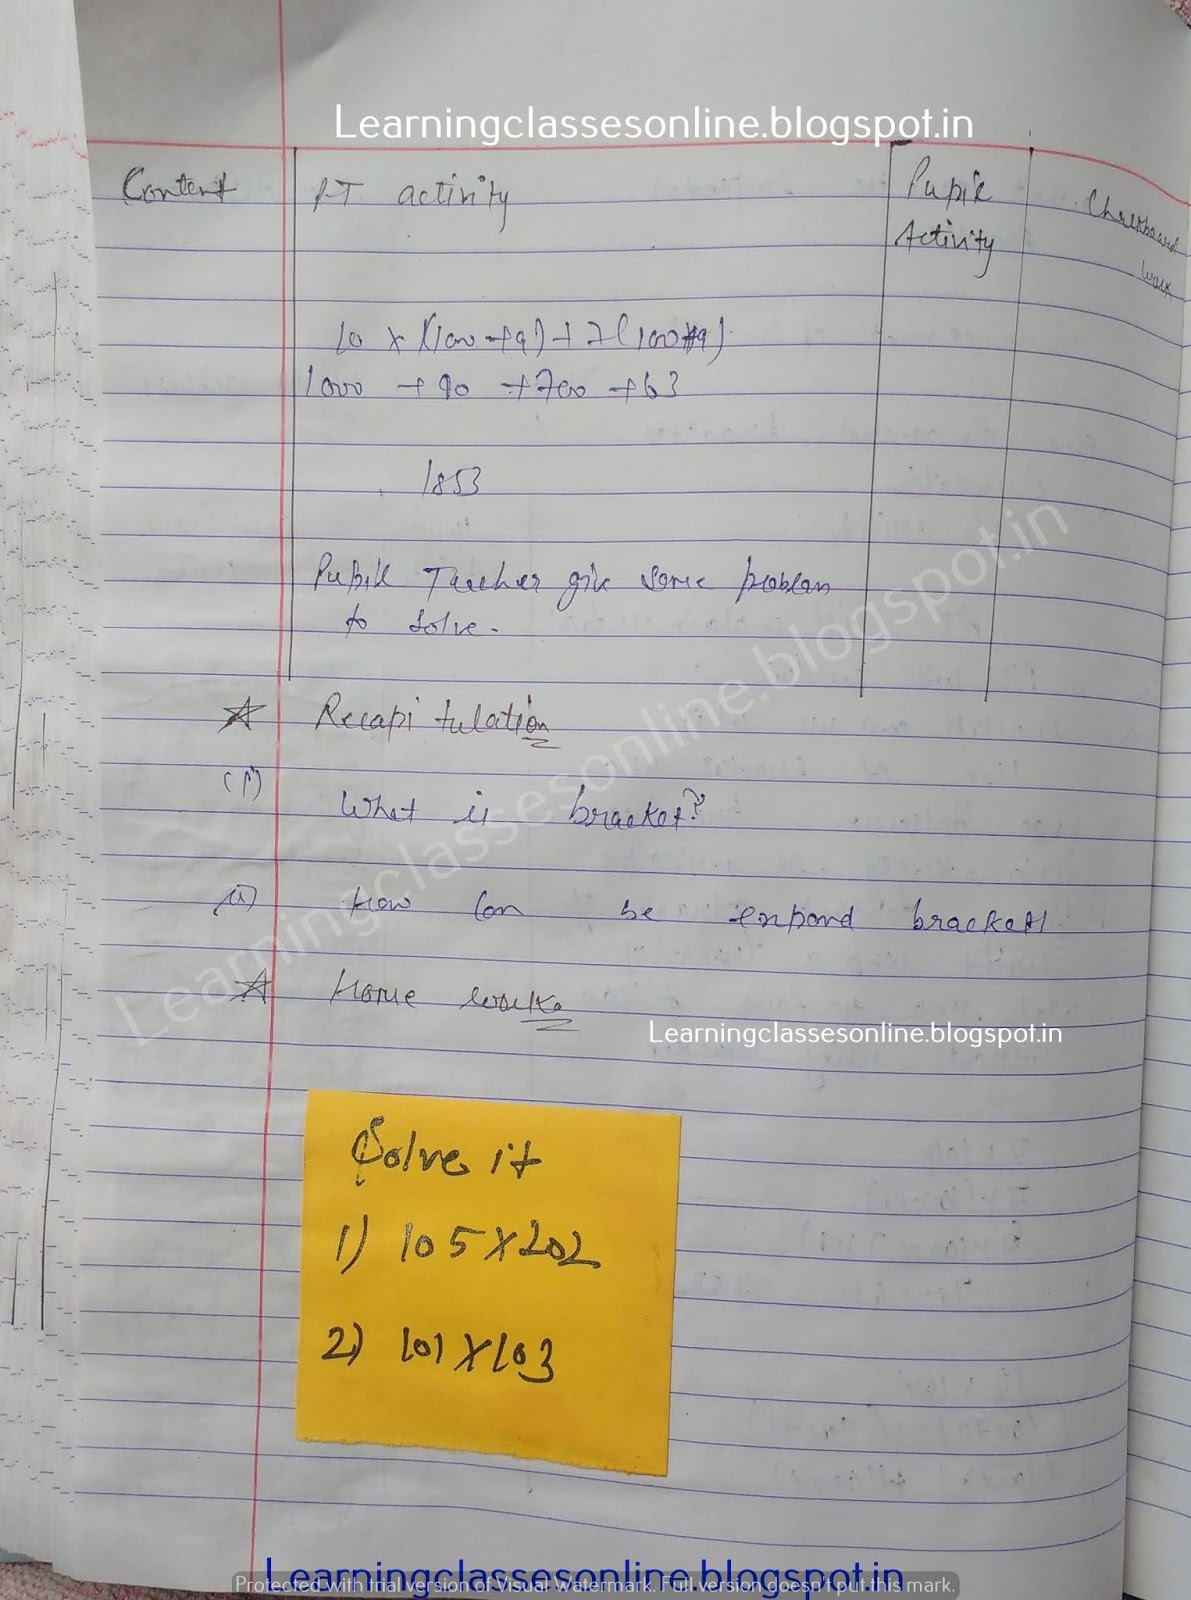 Learningclassesonline.blogspot.in
Content PT activity Pupil Activity Chalkboard work
10 x (100 + 9) + 7 (100+9)
1000 + 90 + 700 + 63
1853
Pupil Teacher give some problem
to solve.
Recapitulation
(i) What is bracket?
(ii) How can be expand brackets
Home work
Learningclassesonline.blogspot.in
Learningclassesonline.blogspot.in
Solve it
1) 105 x 202
2) 101 x 103
Learningclassesonline.blogspot.in
Protected with trial version of Visual Watermark. Full version doesn't put this mark.